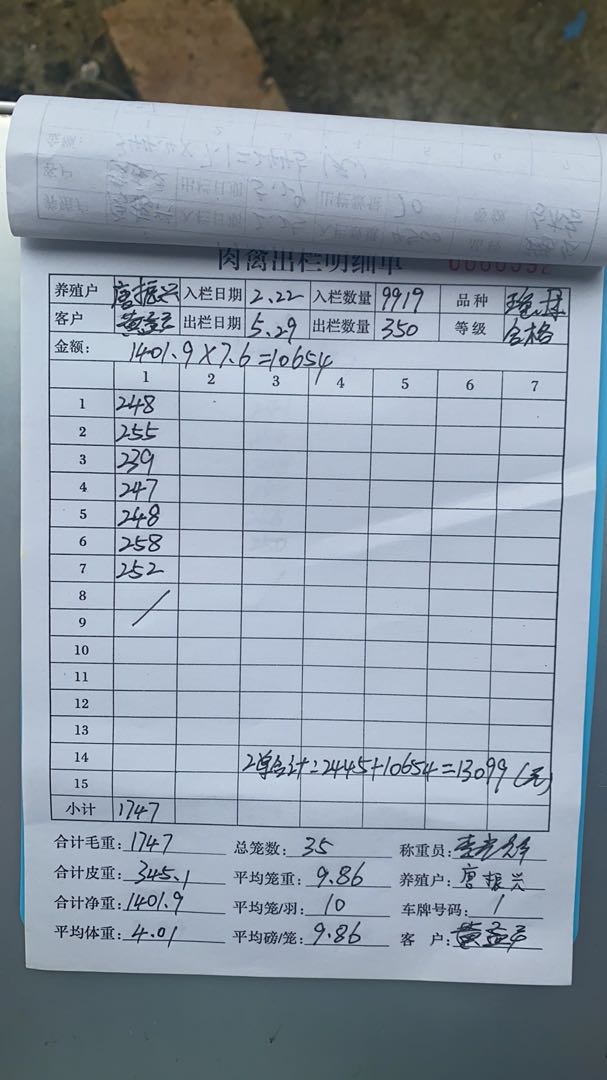 肉禽出栏明细单
养殖户 唐振兴 入栏日期 2.22 入栏数量 9919 品种
客户 出栏日期 5.29 出栏数量 350 等级 合格
金额: 1401.9×7.6=10654
1 2 3 4 5 6 7
1 248
2 255
3 239
4 247
5 248
6 258
7 252
8
9
10
11
12
13
14 2单合计:2445+10654=13099(元)
15
小计 1747
合计毛重: 1747 总笼数: 35 称重员:
合计皮重: 345.1 平均笼重: 9.86 养殖户: 唐振兴
合计净重: 1401.9 平均笼/羽: 10 车牌号码: 1
平均体重: 4.01 平均磅/笼: 9.86 客 户: